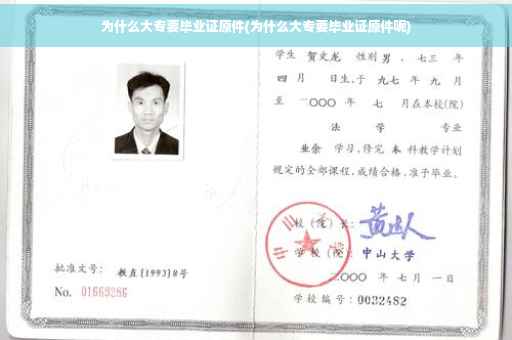 为什么大专要毕业证原件(为什么大专要毕业证原件呢)
学生 贺文龙 性别 男 , 七三 年
四 月 日生,于 九七 年 九 月
至 二〇〇〇 年 七 月在本校(院)
法 学 专业
业余 学习,修完 本 科教学计划
规定的全部课程,成绩合格,准予毕业。
校(院)长:
学 校(院): 中山大学
二〇〇〇 年 七 月 一 日
学校编号: 0032482
批准文号: 教直[1993]8号
No. 01669286